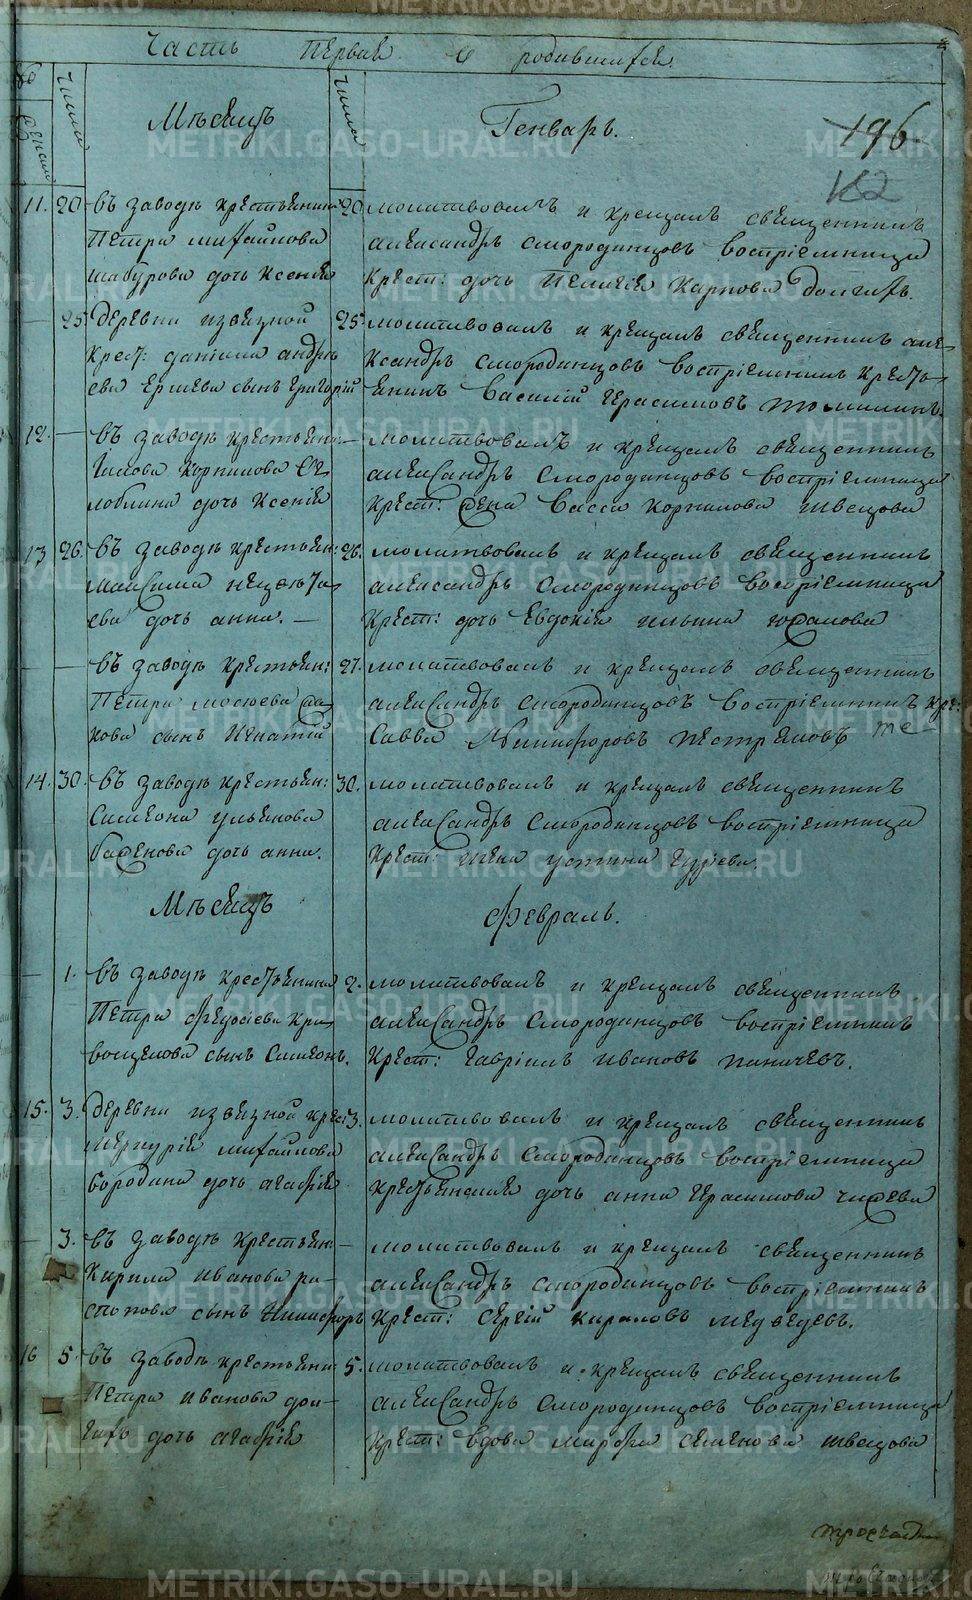 Часть первая о родившихся.
Числа
Числа
Месяцъ
Генварь.
196
182
11. 20 въ заводѣ крестьянина
Петра михайлова
шабурова дочь Ксенія
20 молитвовалъ и крещалъ священникъ
александръ смородинцовъ восприемница
Крест: дочь Пелагія Карпова Долгихъ.
25. деревни извезной
Крест: даніила андрѣ
ева Ершева сынъ григорій
25. молитвовалъ и крещалъ священникъ але
ксандръ смородинцовъ восприемникъ кресть
янинъ василій герасимовъ томилинъ.
12. — въ заводѣ крестьяни
Корнилова
дочь Ксенія
— молитвовалъ и крещалъ священникъ
александръ Смородинцовъ восприемница
Крест: жена васса Корнилова швецова
13 26. въ заводѣ крестьян:
максима
ева дочь анна. —
26. молитвовалъ и крещалъ священникъ
александръ Смородинцовъ восприемница
Крест: дочь Евдокія ильина
— въ заводѣ крестьян:
Петра
кова сынъ Игнатій
27. молитвовалъ и крещалъ священникъ
александръ смородинцовъ восприемникъ кре:
Савва Никифоровъ пестряковъ
14. 30. въ заводѣ крестьян:
Симеона ульянова
баженова дочь анна.
30. молитвовалъ и крещалъ священникъ
александръ Смородинцовъ восприемница
Крест: жена устина гурьева.
Месяцъ
Февраль.
1. въ заводѣ крестьянина
Петра федосіева кри
вощекова сынъ Симеонъ.
2. молитвовалъ и крещалъ священникъ
александръ Смородинцовъ восприемникъ
Крест: гавріилъ ивановъ паначевъ.
15. 3. деревни извезной крес:
меркурія михайлова
бородина дочь агафія
3. молитвовалъ и крещалъ священникъ
александръ Смородинцовъ восприемница
крестьянская дочь анна герасимова
3. въ заводѣ крестьян:
Кирила иванова ра
спопова сынъ Никифоръ
— молитвовалъ и крещалъ священникъ
александръ Смородинцовъ восприемникъ
Крест: сергій кириловъ медведевъ.
16 5. въ заводѣ крестьяни
Петра иванова дол
гихъ дочь агафія
5. молитвовалъ и крещалъ священникъ
александръ Смородинцовъ восприемница
Крест: вдова марфа семенова швецова
METRIKI.GASO-URAL.RU